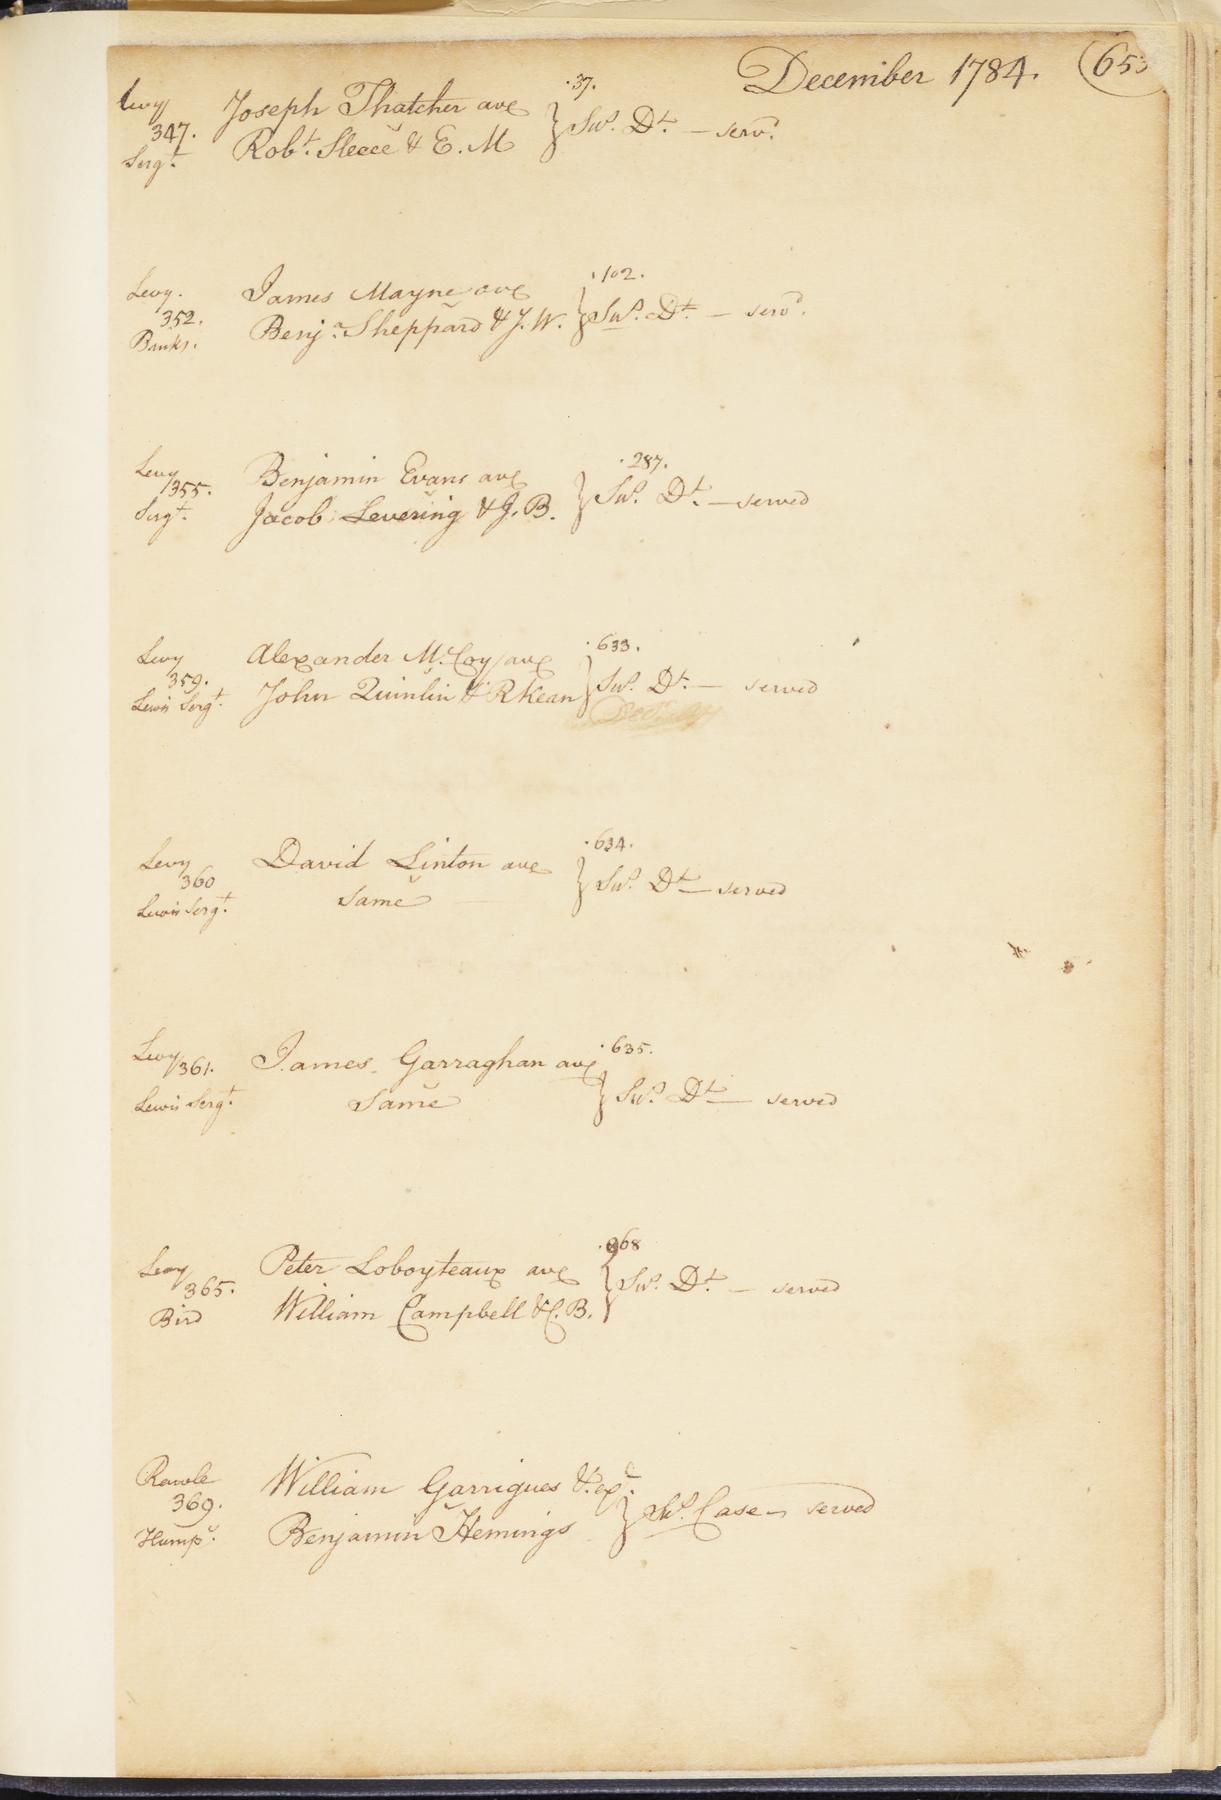 December 1784.
Levy
347.
Sergt.
Joseph Thatcher ave
v
Robt. Sleece & E. M
.37.
} Su?. Dt. — servd.
Levy.
352.
Banks.
James Mayne ave
v
Benja. Sheppard & J. W.
.102.
} Dt. — servd.
Levy
355.
Sergt.
Benjamin Evans ave
v
Jacob Levering & J. B.
.287.
} Dt. — served
Levy
359.
Lewis Sergt.
Alexander McCoy ave
v
John Quinlin & R Kean
.633.
} Dt. — served
Levy
360
Lewis Sergt.
David Linton ave
v
Same
.634.
} Dt. — served
Levy
361.
Lewis Sergt.
James Garraghan ave
v
Same
.635.
} Dt. — served
Levy
365.
Bird
Peter Loboyteaux ave
William Campbell & C. B.
} Dt. — served
Rawle
369.
Humps.
William Garrigues &
v
Benjamin Hemings
} Case — served